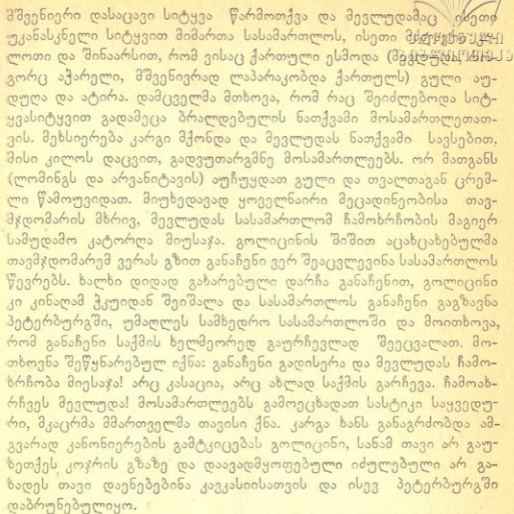 მშვენიერი დასაცავი სიტყვა წარმოთქვა და მევლუდამაც ისეთი
უკანასკნელი სიტყვით მიმართა სასამართლოს, ისეთი
ლოთი და შინაარსით, რომ ვისაც ქართული ესმოდა
გორც აჭარელი, მშვენივრად ლაპარაკობდა ქართულს) გული აუ-
დუღა და ატირა. დამცველმა მთხოვა, რომ რაც შეიძლებოდა სიტ-
ყვასიტყვით გადამეცა ბრალდებულის ნათქვამი მოსამართლეთათ-
ვის. მეხსიერება კარგი მქონდა და მევლუდას ნათქვამი სავსებით,
მისი კილოს დაცვით, გადვუთარგმნე მოსამართლეებს. ორ მათგანს
(ლომინგს და არვანიტავის) აუჩუყდათ გული და თვალთაგან ცრემ-
ლი წამოუვიდათ. მიუხედავად ყოველნაირი მეცადინეობისა თავ-
მჯდომარის მხრივ, მევლუდას სასამართლომ ჩამოხრჩობის მაგიერ
სამუდამო კატორღა მიუსაჯა. გოლიცინის შიშით აცახცახებულმა
თავმჯდომარემ ვერას გზით განაჩენი ვერ შეაცვლევინა სასამართლოს
წევრებს. ხალხი დიდად გახარებული დარჩა განაჩენით, გოლიცინი
კი კინაღამ ჭკუიდან შეიშალა და სასამართლოს განაჩენი გაგზავნა
პეტერბურგში, უმაღლეს სამხედრო სასამართლოში და მოითხოვა,
რომ განაჩენი საქმის ხელმეორედ გაურჩევლად შეეცვალათ. მო-
თხოვნა შეწყნარებულ იქნა: განაჩენი გადისერა და მევლუდას ჩამო-
ხრჩობა მიესაჯა! არც კასაცია, არც ახლად საქმის გარჩევა. ჩამოახ-
რჩვეს მევლუდა! მოსამართლეებს გამოეცხადათ სასტიკი საყვედუ-
რი, მკაცრმა მმართველმა თავისი ქნა. კარგა ხანს განაგრძობდა ამ-
გვარად კანონიერების გამტკიცებას გოლიცინი, სანამ თავი არ გაუ-
ხეთქეს კოჯრის გზაზე და დაავადმყოფებული იძულებული არ გა-
ხადეს თავი დაენებებინა კავკასიისათვის და ისევ პეტერბურგში
დაბრუნებულიყო.